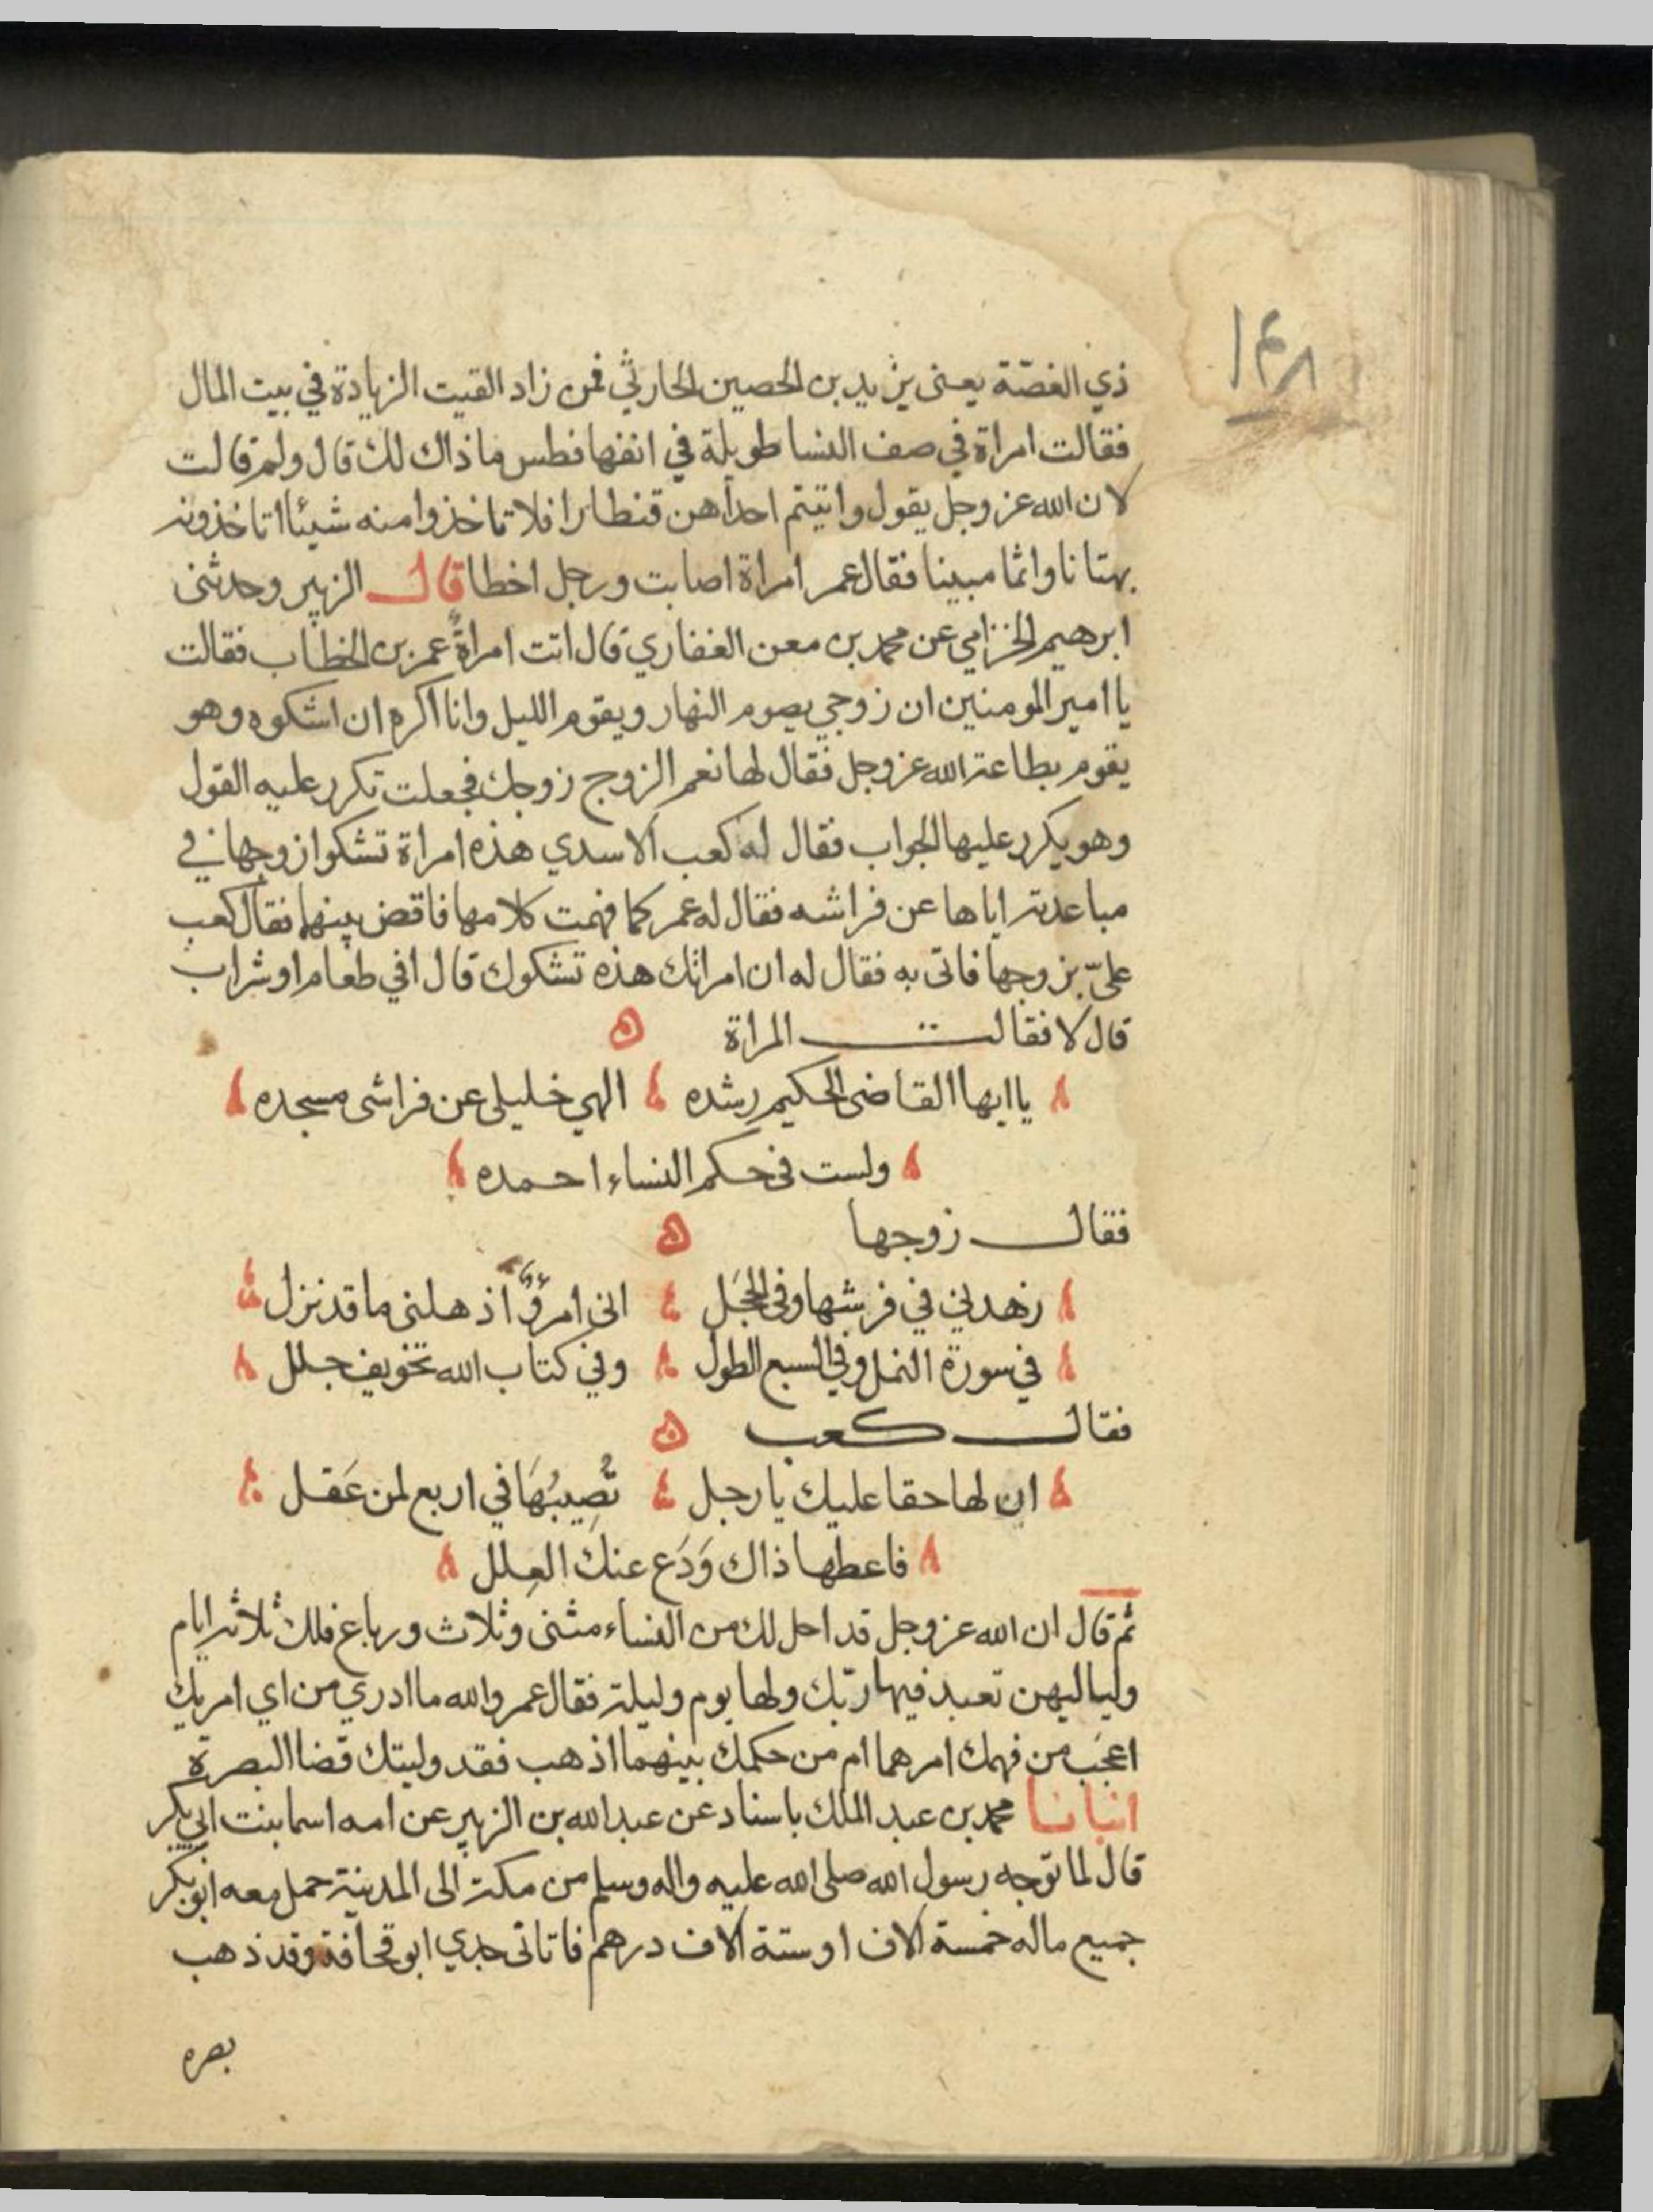 ١٤٨
ذي الغصّة يعنى يزيد بن الحصين الحارثي فمن زاد القيت الزيادة في بيت المال
فقالت امراة في صف النسا طويلة في انفها فطس ما ذاك لك قال ولم قالت
لان الله عز وجل يقول واتيتم احداهن قنطارا فلا تاخذوا منه شيئا اتاخذونه
بهتانا واثما مبينا فقال عمر امراة اصابت ورجل اخطا قال الزبير وحدثنى
ابرهيم الخزامي عن محمد بن معن الغفاري قال اتت امراةٌ عمر بن الخطاب فقالت
يا امير المومنين ان زوجي يصوم النهار ويقوم الليل وانا اكره ان اشكوه وهو
يقوم بطاعة الله عز وجل فقال لها نعم الزوج زوجك فجعلت تكرر عليه القول
وهو يكرر عليها الجواب فقال له كعب الاسدي هذه امراة تشكوا زوجها في
مباعدته اياها عن فراشه فقال له عمر كما فهمت كلامها فاقض بينهما فقال كعب
عليّ بزوجها فاتى به فقال له ان امراتك هذه تشكوك قال افي طعام او شراب
قال لا فقالت المراة
يا ايها القاضى الحكيم رشده الهي خليلى عن فراشى مسجده
ولست فى حكم النساء احمده
فقال زوجها
زهدني في فرشها وفى الحجَل انى امرؤٌ اذهلنى ما قد نزل
في سورة النمل وفى السبع الطول وفي كتاب الله تخويف جلل
فقال كعب
ان لها حقا عليك يا رجل تُصِيبُهَا في اربع لمن عَقل
فاعطها ذاك وَدَع عنك العِلل
ثم قال ان الله عز وجل قد احل لك من النساء مثنى وثلاث ورباع فلك ثلاثه ايام
ولياليهن تعبد فيها ربّك ولها يوم وليلة فقال عمر والله ما ادري من اي امريك
اعجَب من فهمك امرهما ام من حكمك بينهما اذهب فقد وليتك قضا البصرة
انبانا محمد بن عبد الملك باسناد عن عبد الله بن الزبير عن امه اسما بنت ابي بكر
قال لما توجه رسول الله صلى الله عليه واله وسلم من مكة الى المدينة حمل معه ابو بكر
جميع ماله خمسة الاف او ستة الاف درهم فاتانى جدي ابو قحافة وقد ذهب
بصره